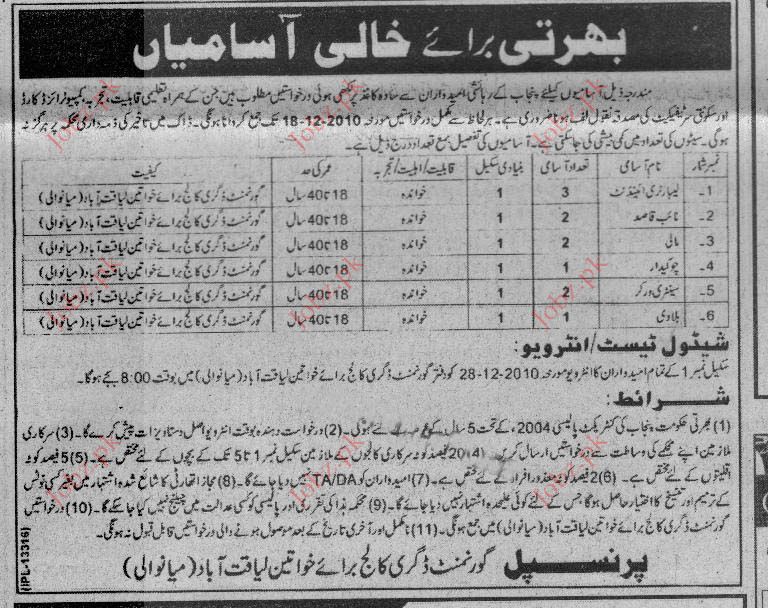 بھرتی برائے خالی آسامیاں
مندرجہ ذیل آسامیوں کیلئے پنجاب کے رہائشی امیدواران سے سادہ کاغذ پر لکھی ہوئی درخواستیں مطلوب ہیں جن کے ہمراہ تعلیمی قابلیت، تجربہ، کمپیوٹرائزڈ کارڈ
اور سکونتی سرٹیفکیٹ کی مصدقہ نقول لف ہونا ضروری ہے۔ ہر لحاظ سے مکمل درخواستیں مورخہ 18-12-2010 تک جمع کروانا ہونگی۔ ڈاک میں تاخیر کی ذمہ داری محکمہ پر ہرگز نہ
ہوگی۔ سیٹوں کی تعداد میں کمی بیشی کی جاسکتی ہے۔ آسامیوں کی تفصیل بمع تعداد درج ذیل ہے۔
نمبر شمار نام آسامی تعداد آسامی بنیادی سکیل قابلیت/اہلیت/تجربہ عمر کی حد کیفیت
1۔ لیبارٹری اٹینڈنٹ 3 1 خواندہ 18 تا 40 سال گورنمنٹ ڈگری کالج برائے خواتین لیاقت آباد (میانوالی)
2۔ نائب قاصد 2 1 خواندہ 18 تا 40 سال گورنمنٹ ڈگری کالج برائے خواتین لیاقت آباد (میانوالی)
3۔ مالی 2 1 خواندہ 18 تا 40 سال گورنمنٹ ڈگری کالج برائے خواتین لیاقت آباد (میانوالی)
4۔ چوکیدار 1 1 خواندہ 18 تا 40 سال گورنمنٹ ڈگری کالج برائے خواتین لیاقت آباد (میانوالی)
5۔ سینٹری ورکر 2 1 خواندہ 18 تا 40 سال گورنمنٹ ڈگری کالج برائے خواتین لیاقت آباد (میانوالی)
6۔ بلاوی 1 1 خواندہ 18 تا 40 سال گورنمنٹ ڈگری کالج برائے خواتین لیاقت آباد (میانوالی)
شیڈول ٹیسٹ/انٹرویو:
سکیل نمبر 1 کے تمام امیدواران کا انٹرویو مورخہ 28-12-2010 کو دفتر گورنمنٹ ڈگری کالج برائے خواتین لیاقت آباد (میانوالی) میں بوقت 8:00 بجے ہوگا۔
شرائط:
(1) بھرتی حکومت پنجاب کی کنٹریکٹ پالیسی 2004ء کے تحت 5 سال کے لئے ہوگی۔ (2) درخواست دہندہ بوقت انٹرویو اصل دستاویزات پیش کرے گا۔ (3) سرکاری
ملازمین اپنے محکمے کی وساطت سے درخواستیں ارسال کریں۔ (4) 20 فیصد کوٹہ سرکاری کالجوں کے ملازمین سکیل نمبر 1 تا 5 تک کے بچوں کے لئے مختص ہے۔ (5) 5 فیصد کوٹہ
اقلیتوں کے لئے مختص ہے۔ (6) 2 فیصد کوٹہ معذور افراد کے لئے مختص ہے۔ (7) امیدواران کو TA/DA نہیں دیا جائے گا۔ (8) مجاز اتھارٹی کا شائع شدہ اشتہار میں بغیر کسی نوٹس
کے ترمیم اور تنسیخ کا اختیار حاصل ہوگا، جس کے لئے کوئی علیحدہ اشتہار نہیں دیا جائے گا۔ (9) محکمہ ہذا کی تقرری اور پالیسی کو کسی عدالت میں چیلنج نہیں کیا جاسکے گا۔ (10) درخواستیں
گورنمنٹ ڈگری کالج برائے خواتین لیاقت آباد (میانوالی) میں جمع ہونگی۔ (11) نامکمل اور آخری تاریخ کے بعد موصول ہونے والی درخواستیں قابل قبول نہ ہونگی۔
پرنسپل گورنمنٹ ڈگری کالج برائے خواتین لیاقت آباد (میانوالی)
(IPL-13316)
Jobz.pk
Jobz.pk
Jobz.pk
Jobz.pk
Jobz.pk
Jobz.pk
Jobz.pk
Jobz.pk
Jobz.pk